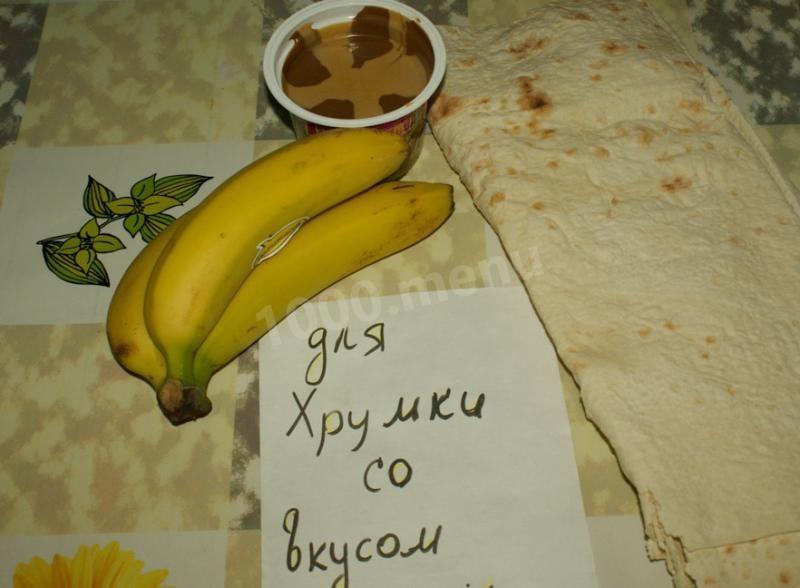 1000.menu
для
Хрумки
со
вкусом